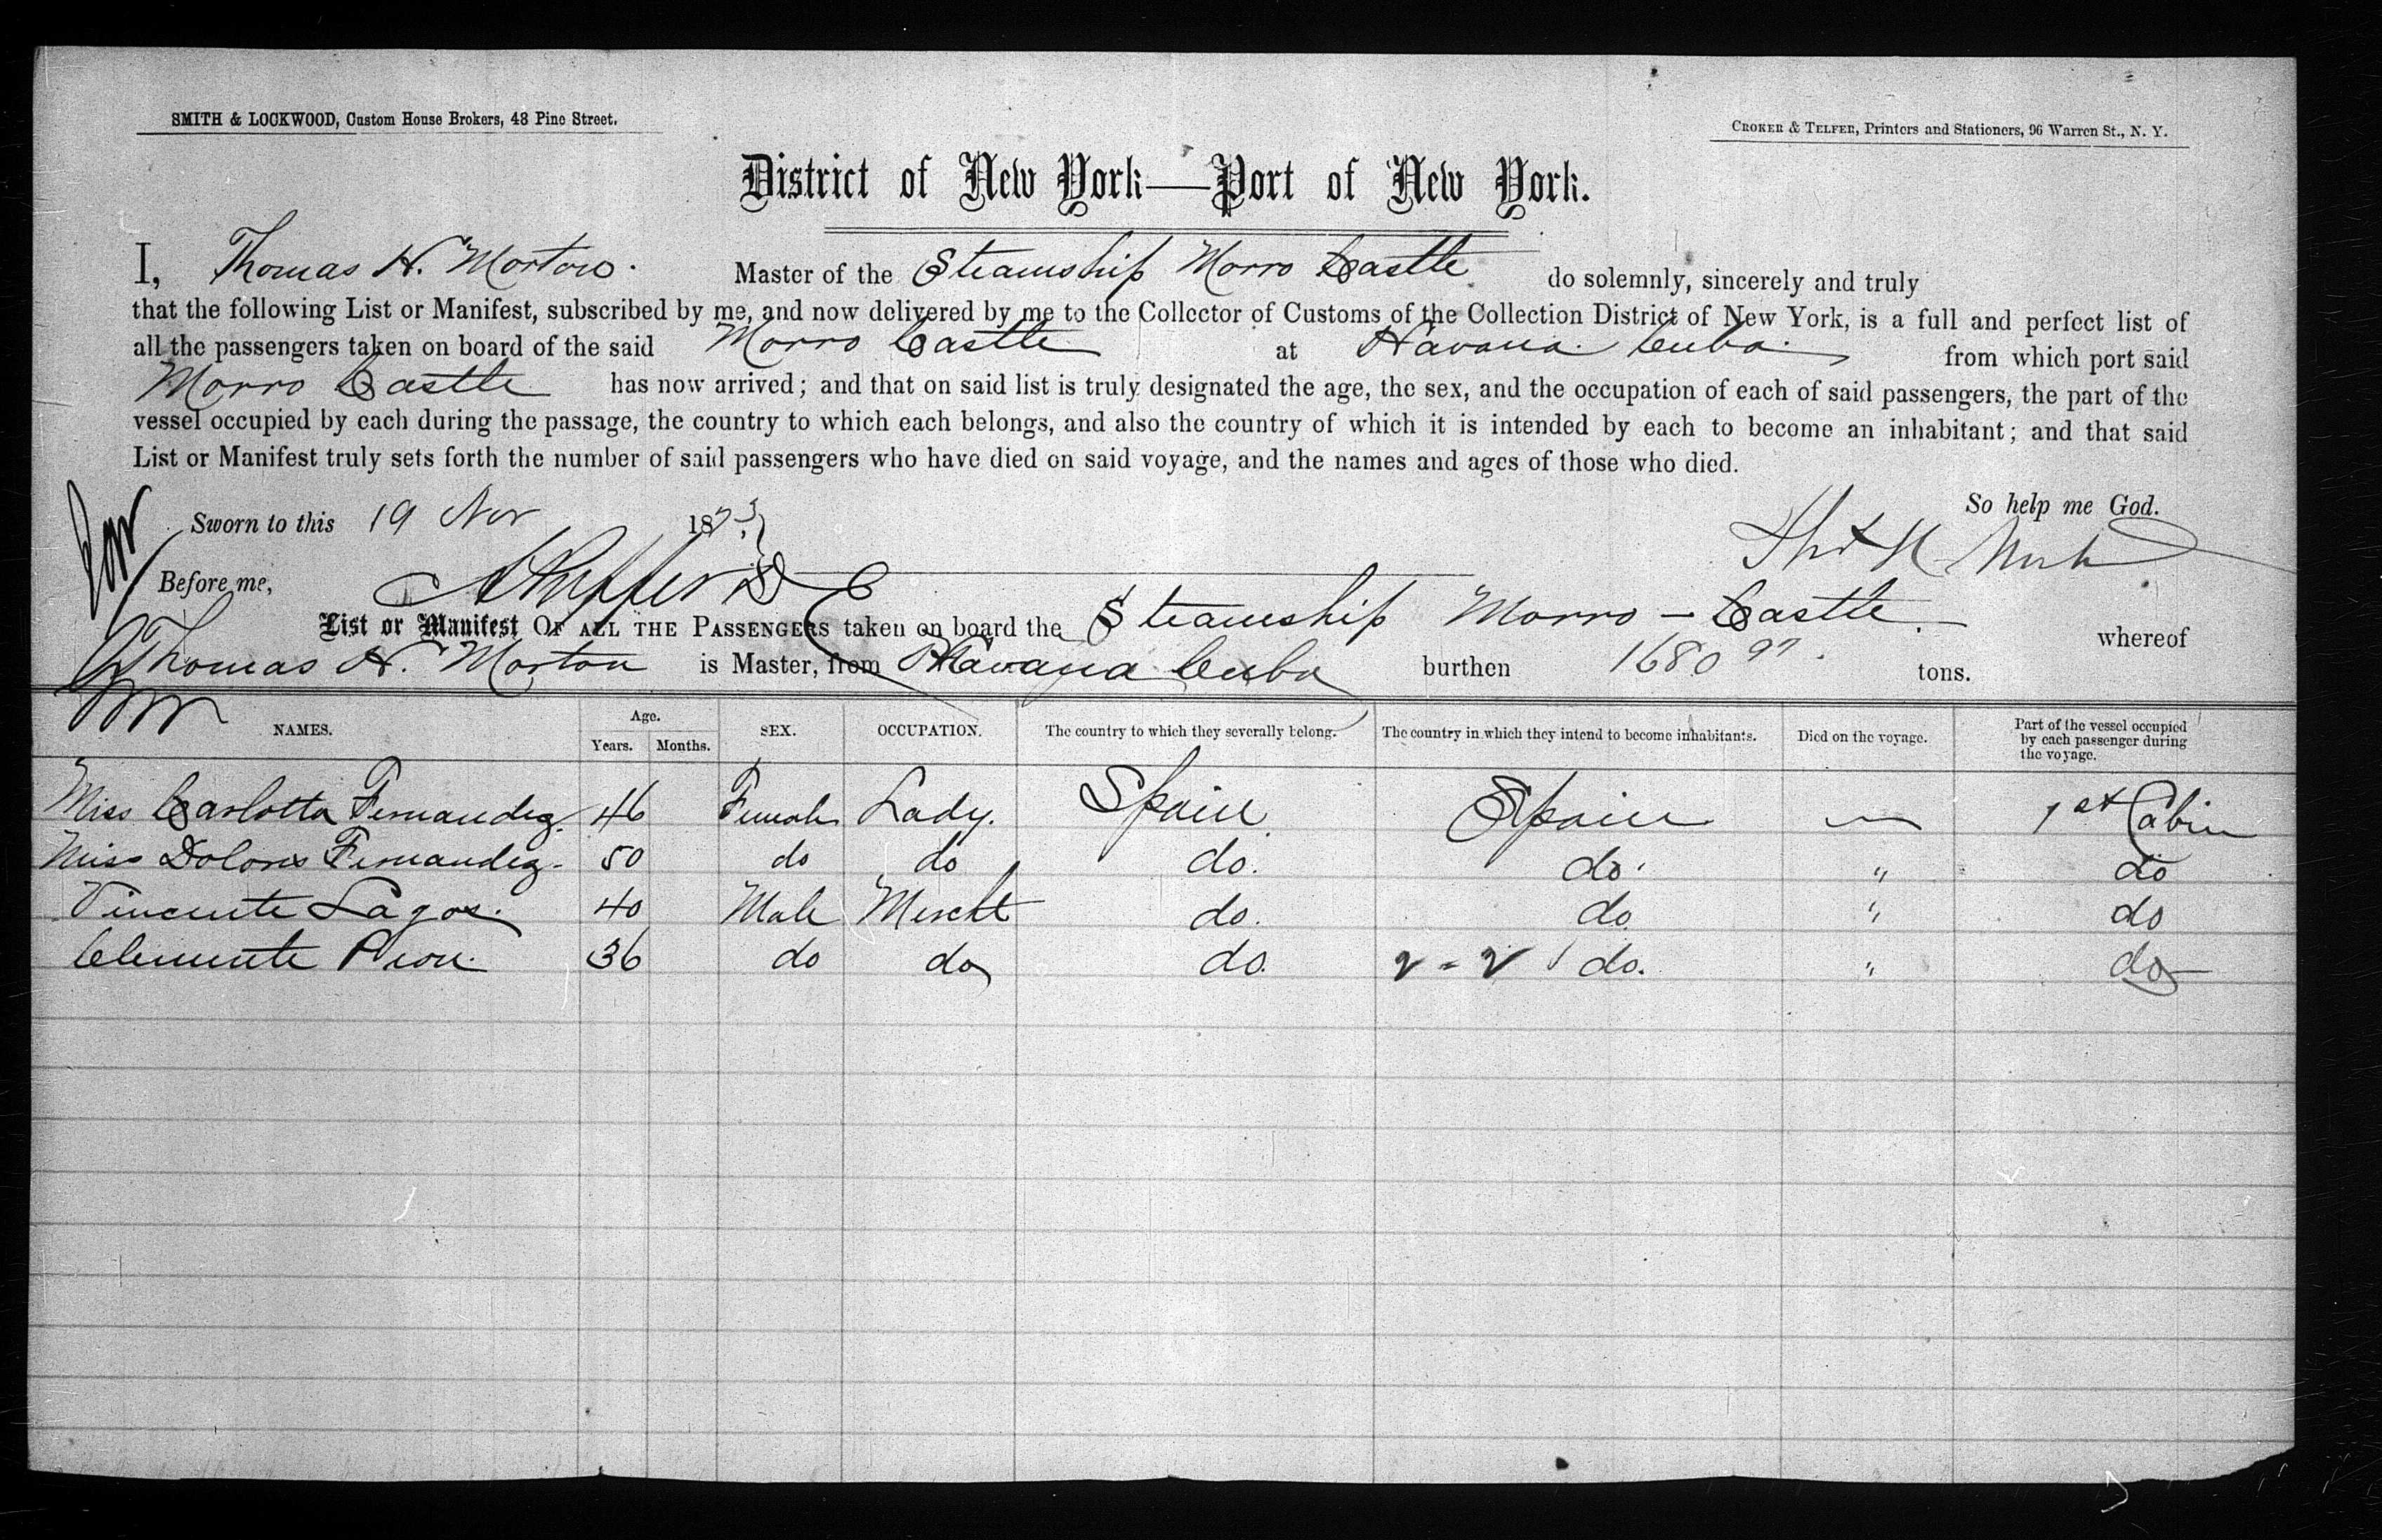 SMITH & LOCKWOOD, Custom House Brokers, 48 Pine Street.
CROKER & TELFER, Printers and Stationers, 96 Warren St., N. Y.
District of New York—Port of New York.
I, Thomas H. Morton. Master of the Steamship Morro Castle do solemnly, sincerely and truly
that the following List or Manifest, subscribed by me, and now delivered by me to the Collector of Customs of the Collection District of New York, is a full and perfect list of
all the passengers taken on board of the said Morro Castle at Havana Cuba. from which port said
Morro Castle has now arrived; and that on said list is truly designated the age, the sex, and the occupation of each of said passengers, the part of the
vessel occupied by each during the passage, the country to which each belongs, and also the country of which it is intended by each to become an inhabitant; and that said
List or Manifest truly sets forth the number of said passengers who have died on said voyage, and the names and ages of those who died.
So help me God.
Sworn to this 19 Nov 1873
Before me,
List or Manifest OF ALL THE PASSENGERS taken on board the Steamship Morro - Castle. whereof
Thomas H. Morton is Master, from Havana Cuba burthen 1680 97 tons.
NAMES. Age. Years. Months. SEX. OCCUPATION. The country to which they severally belong. The country in which they intend to become inhabitants. Died on the voyage. Part of the vessel occupied by each passenger during the voyage.
Miss Carlotta Fernandez 46 Female Lady. Spain Spain — 1st Cabin
Miss Dolores Fernandez. 50 do do do. do. " do
Vincente Lagos. 40 Male Mercht do. do " do
Clemente 36 do do do. do. " do